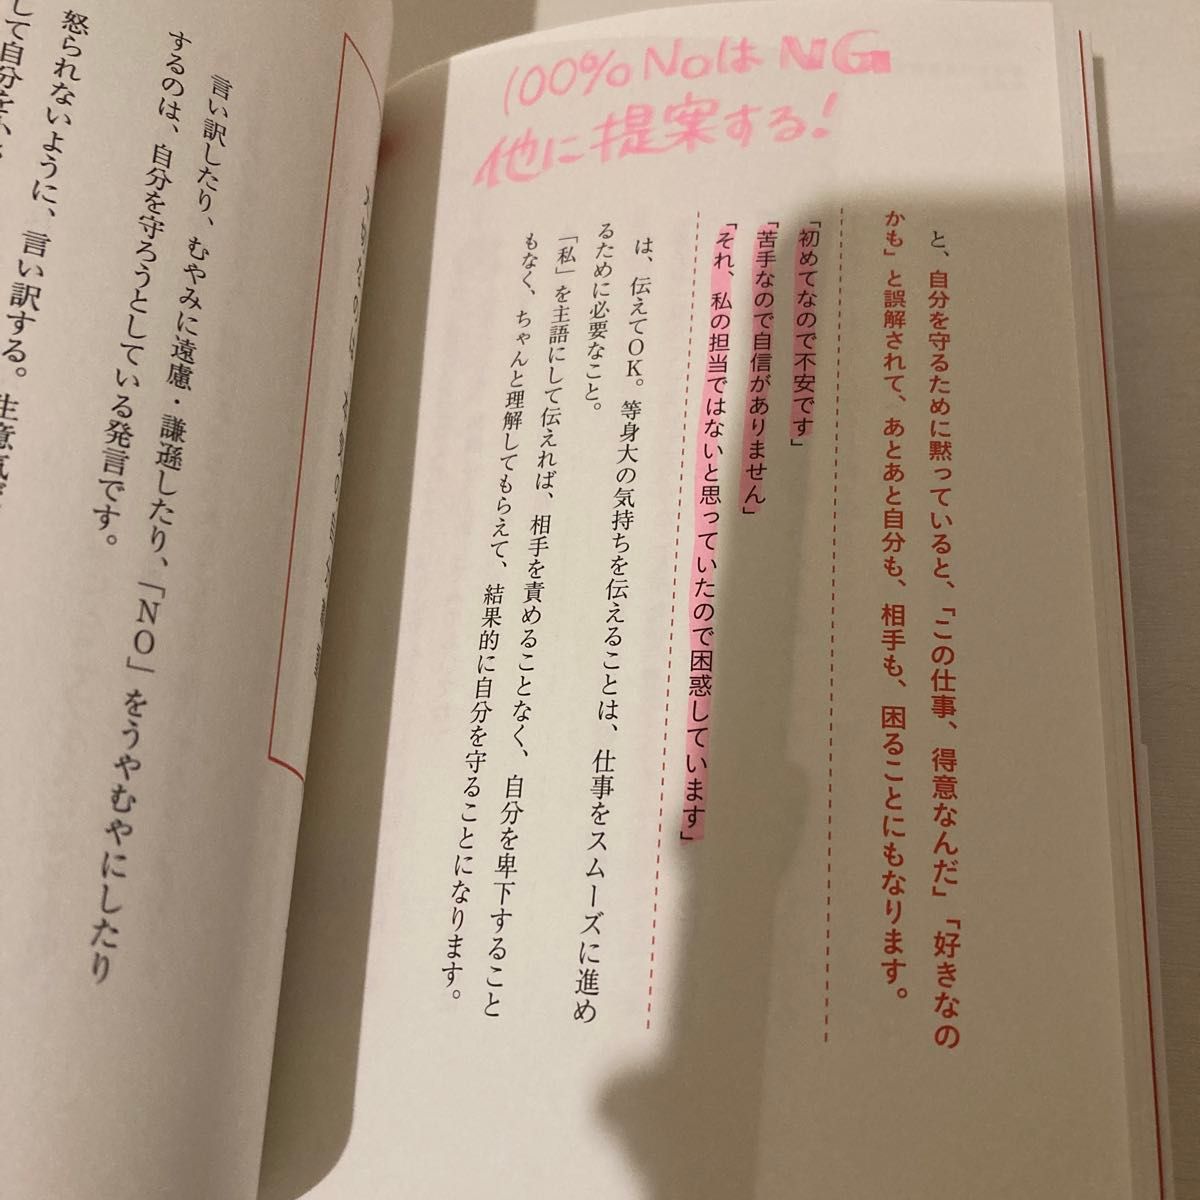 100%NoはNG
他に提案する!
と、自分を守るために黙っていると、「この仕事、得意なんだ」「好きなの
かも」と誤解されて、あとあと自分も、相手も、困ることにもなります。
「初めてなので不安です」
「苦手なので自信がありません」
「それ、私の担当ではないと思っていたので困惑しています」
は、伝えてOK。等身大の気持ちを伝えることは、仕事をスムーズに進め
るために必要なこと。
「私」を主語にして伝えれば、相手を責めることなく、自分を卑下すること
もなく、ちゃんと理解してもらえて、結果的に自分を守ることになります。
言い訳したり、むやみに遠慮・謙遜したり、「NO」をうやむやにしたり
するのは、自分を守ろうとしている発言です。
怒られないように、言い訳する。生意気だ
して自分を